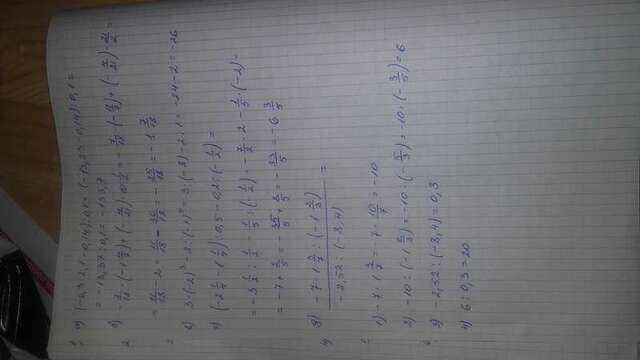 а) (-6,3·2,1-0,14):0,1= (-13,23-0,14):0,1=
= -13,37:0,1=-133,7
= 11/18 - 2 = 11/18 - 36/18 = - 25/18 = - 1 7/18
в) 3·(-2)³-2:(-1)⁴=3·(-8)-2:1=-24-2=-26
г) (-2 1/4 - 1 1/4):0,5-0,2:(-1/2)=
= -3 1/2 : 1/2 - 1/5 : (-1/2) = - 7/2 · 2 - 1/5 · (-2) =
= -7 + 2/5 = - 35/5 + 2/5 = - 33/5 = -6 3/5
д) -7·1 3/7 : (-1 2/3)
-2,52:(-8,4) =
1) -7·1 3/7 = -7· 10/7 = -10
2) -10:(-1 2/3) = -10:(-5/3) = -10·(-3/5) = 6
3) -2,52:(-8,4)=0,3
4) 6:0,3=20